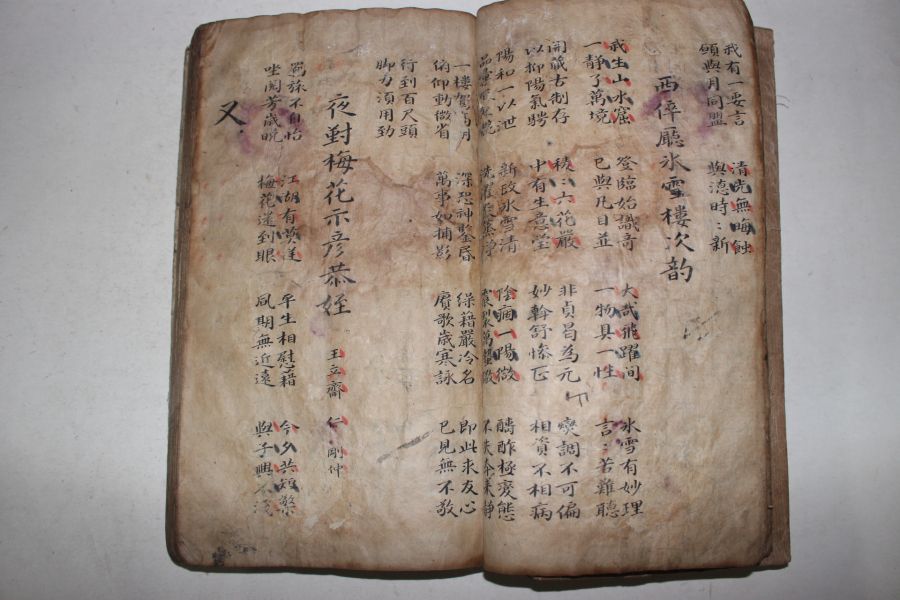 我有一要言
願與月同盟
清光無晦蝕
與德時〻新
西倅廳氷雪樓次韵
我生山水窟
一靜了萬境
登臨始識奇
已與凡目並
大哉飛躍間
一物具一性
氷雪有妙理
言〻苦難聽
開藏古制存
以抑陽氣騁
積〻六花嚴
中有生意瑩
非貞曷為元
妙斡舒慘正
燮調不可偏
相資不相病
陽和一以泄
新政氷雪清
陰痼一陽微
醻酢極變態
一樓駕高月
俯仰動微省
深恐神鑒昏
萬事如捕影
綠籍嚴冷名
賡歌歲寒詠
即此求友心
已見無不敬
行到百尺頭
脚力須用勁
夜對梅花示彦恭姪
王立齋 仁 剛仲
羇旅不自怡
坐閱芳歲晚
江湖有莫逆
梅花還到眼
平生相慰藉
夙期無近遠
今夕共短檠
與子興不淺
又